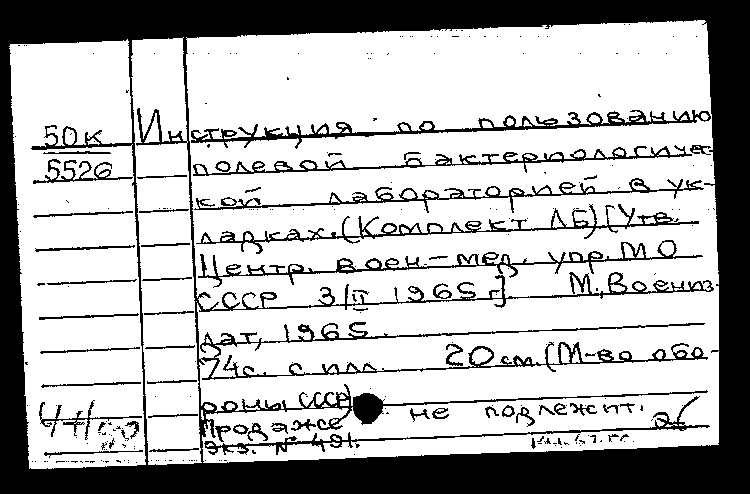 50К Инструкция по пользованию
5526 полевой бактериологичес-
кой лабораторией в ук-
ладках.(Комплект ЛБ)[Утв.
Центр. воен.-мед. упр. МО
СССР 3/II 1965 г]. М., Воениз-
дат, 1965.
74с. с илл. 20 см. (М-во обо-
роны СССР)
Продаже не подлежит.
Экз. № 491.